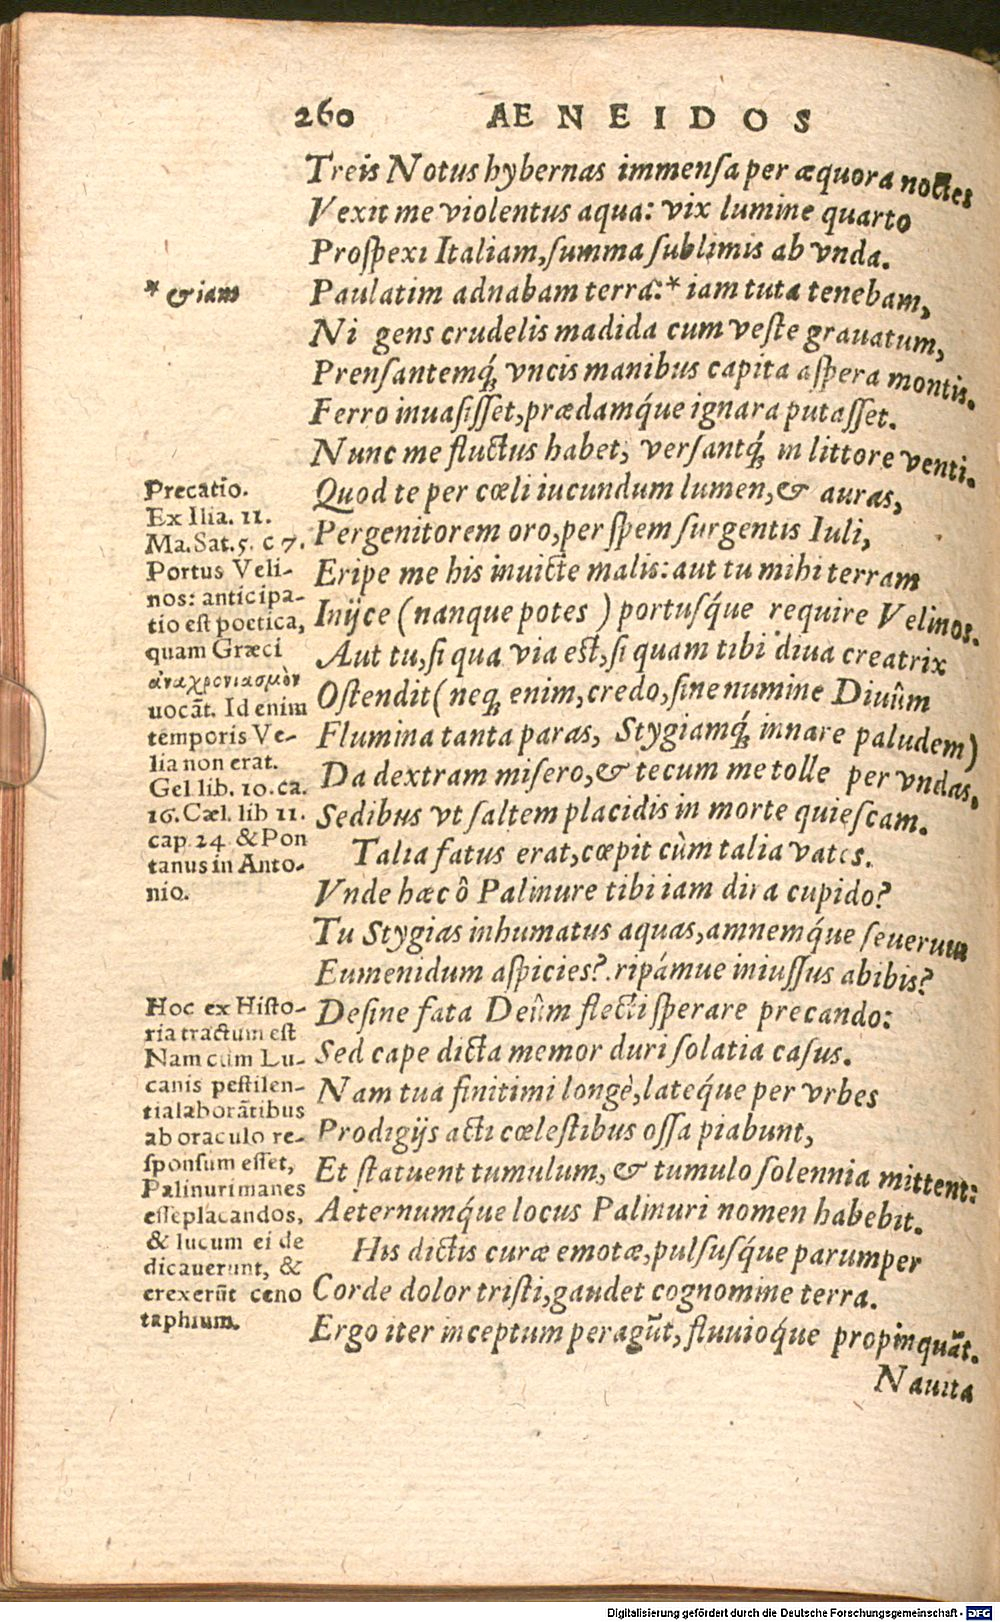 260 AENEIDOS
Treis Notus hybernas immensa per æquora noctes
Vexit me violentus aqua: vix lumine quarto
Prospexi Italiam, summa sublimis ab vnda.
Paulatim adnabam terræ:* iam tuta tenebam,
Ni gens crudelis madida cum veste grauatum,
Prensantemq́; vncis manibus capita aspera montis.
Ferro inuasisset, prædamq́ue ignara putasset.
Nunc me fluctus habet, versantq́; in littore venti.
Quod te per cœli iucundum lumen, & auras,
Per genitorem oro, per spem surgentis Iuli,
Eripe me his inuicte malis: aut tu mihi terram
Inijce (nanque potes) portusq́ue require Velinos.
Aut tu, si qua via est, si quam tibi diua creatrix
Ostendit (neq; enim, credo, sine numine Diuûm
Flumina tanta paras, Stygiamq́; innare paludem)
Da dextram misero, & tecum me tolle per vndas,
Sedibus vt saltem placidis in morte quiescam.
Talia fatus erat, cœpit cùm talia vates.
Vnde hæc ô Palinure tibi iam dira cupido?
Tu Stygias inhumatus aquas, amnemq́ue seuerum
Eumenidum aspicies? ripámue iniussus abibis?
Desine fata Deûm flecti sperare precando:
Sed cape dicta memor duri solatia casus.
Nam tua finitimi longè, lateq́ue per vrbes
Prodigijs acti cœlestibus ossa piabunt,
Et statuent tumulum, & tumulo solennia mittent:
Aeternumq́ue locus Palinuri nomen habebit.
His dictis curæ emotæ, pulsusq́ue parumper
Corde dolor tristi, gaudet cognomine terra.
Ergo iter inceptum peragũt, fluuioq́ue propinquãt.
Nauita
* & iam
Precatio.
Ex Ilia. 11.
Ma. Sat. 5. c 7.
Portus Veli-
nos: anticipa-
tio est poetica,
quam Græci
ἀναχρονιασμὸν
uocãt. Id enim
temporis Ve-
lia non erat.
Gel lib. 10. ca.
16. Cæl. lib 11.
cap 24 & Pon
tanus in Anto-
nio.
Hoc ex Histo-
ria tractum est
Nam cum Lu-
canis pestilen-
tia laborãtibus
ab oraculo re-
sponsum esset,
Palinuri manes
esse placandos,
& lucum ei de
dicauerunt, &
erexerũt ceno
taphium.
Digitalisierung gefördert durch die Deutsche Forschungsgemeinschaft - DFG